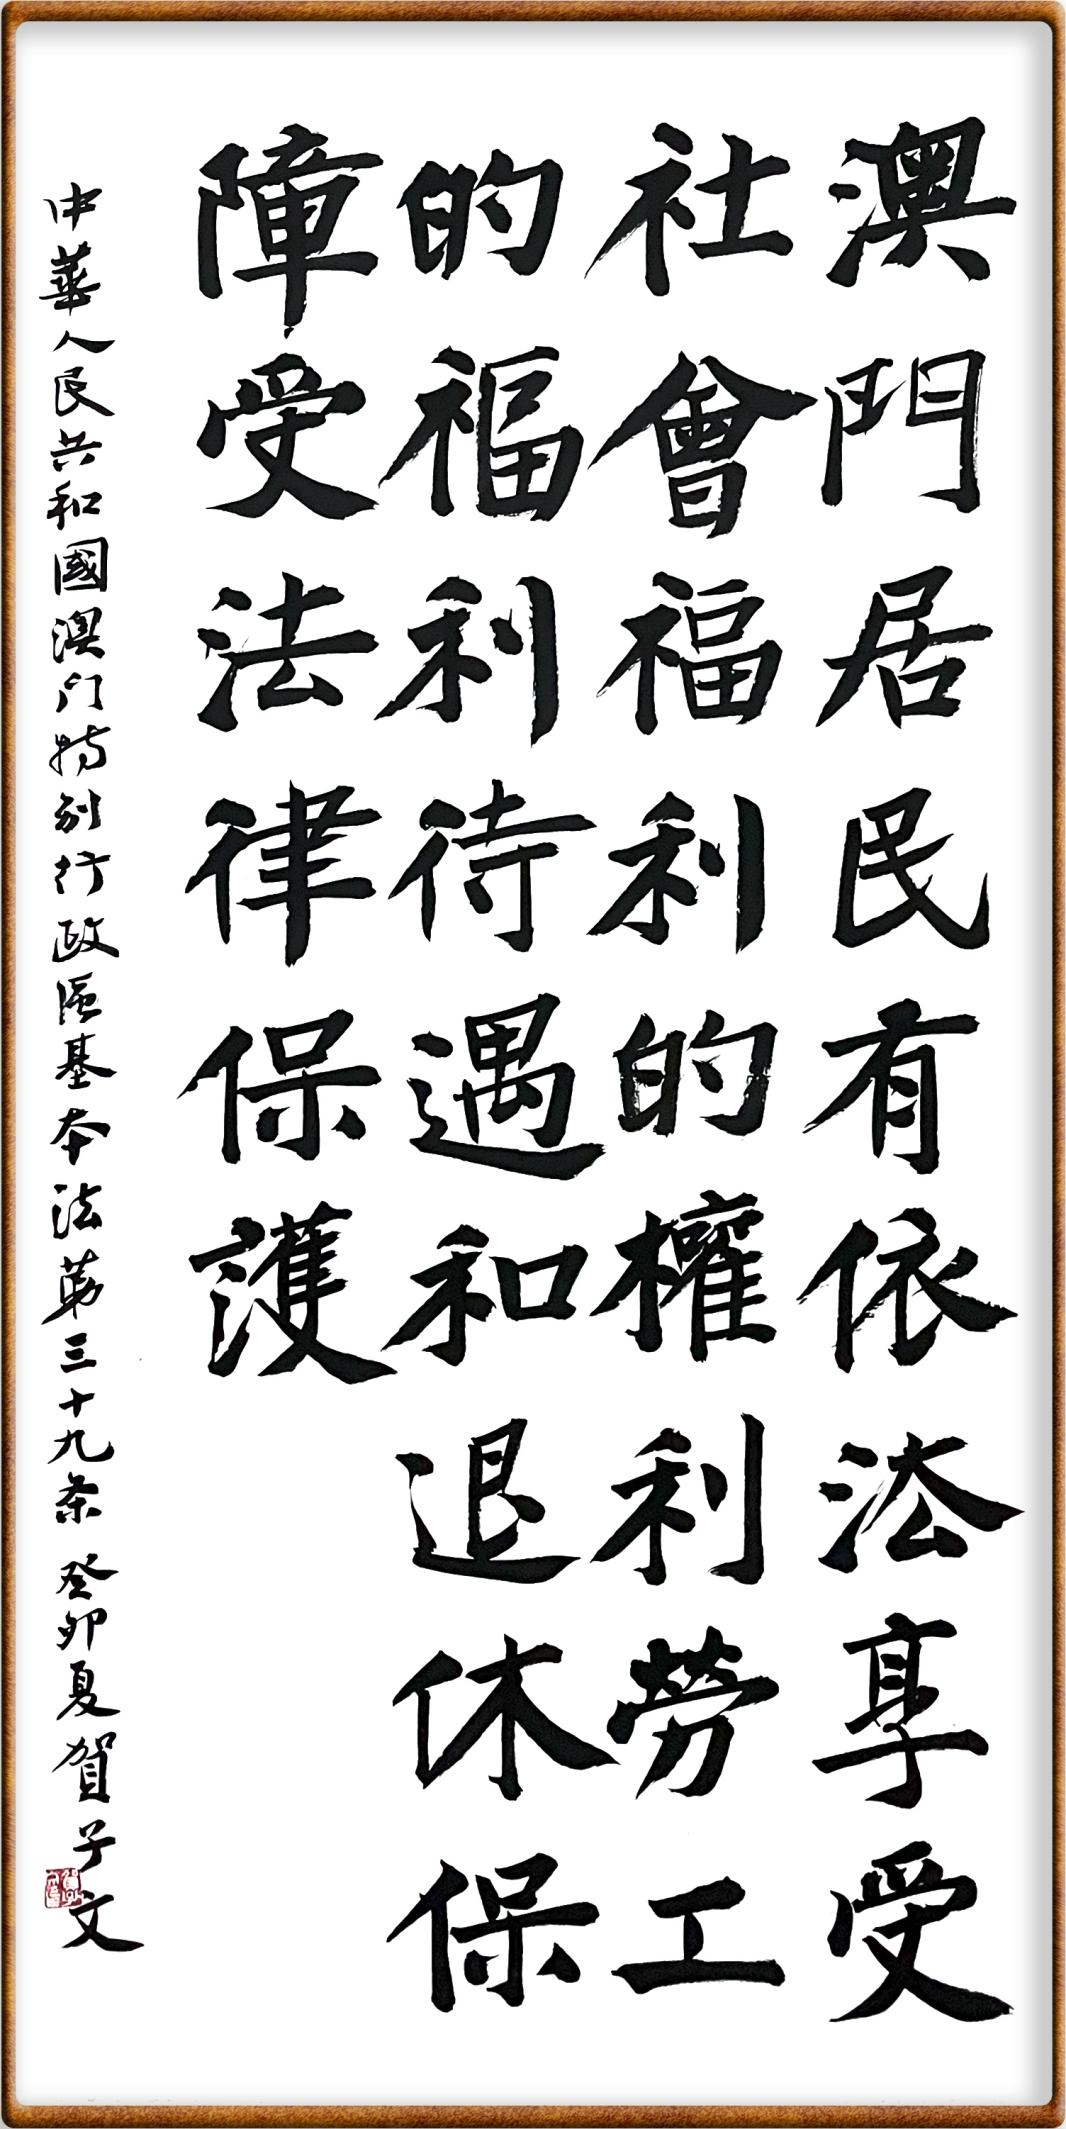 澳門居民有依法享受
社會福利的權利勞工
的福利待遇和退休保
障受法律保護
中華人民共和國澳门特别行政區基本法第三十九条 癸卯夏賀子文